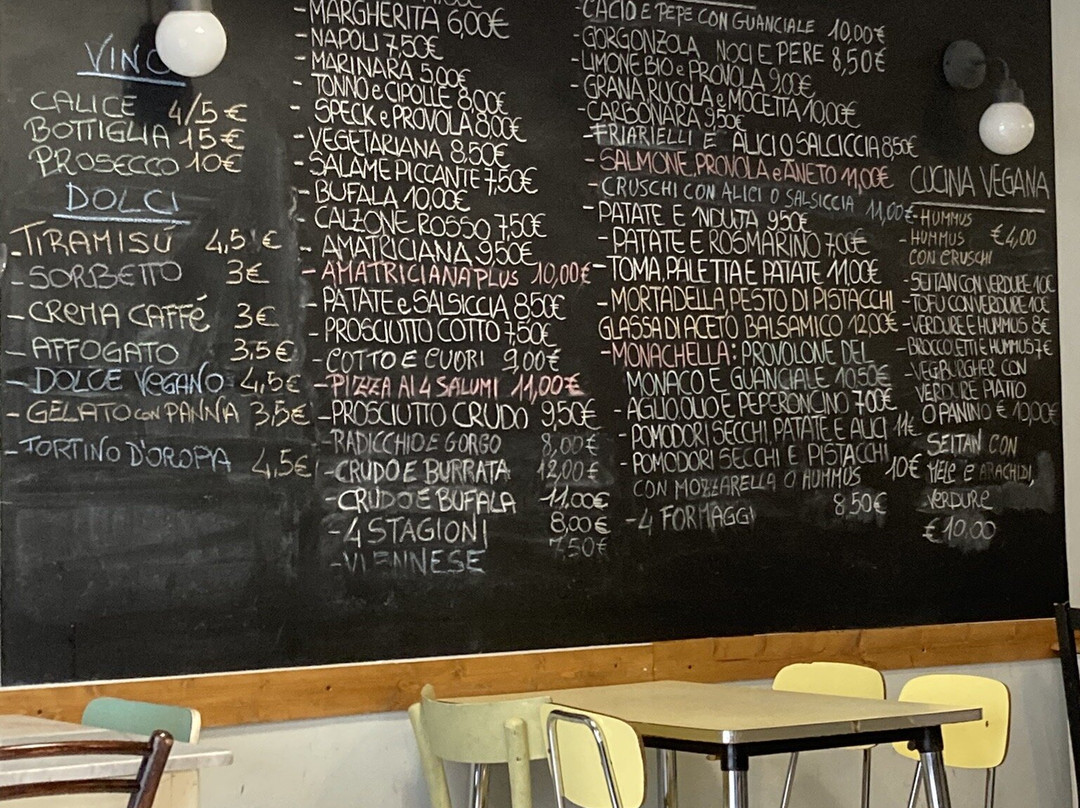 VINO
CALICE 4/5€
BOTTIGLIA 15€
PROSECCO 10€
DOLCI
-TIRAMISÚ 4,5€
-SORBETTO 3€
-CREMA CAFFÉ 3€
-AFFOGATO 3,5€
-DOLCE VEGANO 4,5€
-GELATO CON PANNA 3,5€
-TORTINO D'OROPA 4,5€
-MARGHERITA 6,00€
-NAPOLI 7,50€
-MARINARA 5,00€
-TONNO e CIPOLLE 8,00€
-SPECK e PROVOLA 8,00€
-VEGETARIANA 8,50€
-SALAME PICCANTE 7,50€
-BUFALA 10,00€
-CALZONE ROSSO 7,50€
-AMATRICIANA 9,50€
-AMATRICIANA PLUS 10,00€
-PATATE e SALSICCIA 8,50€
-PROSCIUTTO COTTO 7,50€
-COTTO E CUORI 9,00€
-PIZZA AI 4 SALUMI 11,00€
-PROSCIUTTO CRUDO 9,50€
-RADICCHIO E GORGO 8,00€
-CRUDO E BURRATA 12,00€
-CRUDO E BUFALA 11,00€
-4 STAGIONI 8,00€
-VIENNESE 7,50€
-CACIO E PEPE CON GUANCIALE 10,00€
-GORGONZOLA NOCI E PERE 8,50€
-LIMONE BIO e PROVOLA 9,00€
-GRANA RUCOLA e MOCETTA 10,00€
-CARBONARA 9,50€
-FRIARIELLI E ALICI O SALCICCIA 8,50€
-SALMONE, PROVOLA e ANETO 11,00€
-CRUSCHI CON ALICI O SALSICCIA 11,00€
-PATATE E 'NDUJA 9,50€
-PATATE E ROSMARINO 7,00€
-TOMA, PALETTA E PATATE 11,00€
-MORTADELLA, PESTO DI PISTACCHI
GLASSA DI ACETO BALSAMICO 12,00€
-MONACHELLA: PROVOLONE DEL
MONACO E GUANCIALE 10,50€
-AGLIO, OLIO E PEPERONCINO 7,00€
-POMODORI SECCHI, PATATE E ALICI 11€
-POMODORI SECCHI E PISTACCHI
CON MOZZARELLA O HUMMUS 10€
-4 FORMAGGI 8,50€
CUCINA VEGANA
-HUMMUS
-HUMMUS €4,00
CON CRUSCHI
-SEITAN CON VERDURE 10€
-TOFU CON VERDURE 10€
-VERDURE E HUMMUS 8€
-BROCCOLETTI E HUMMUS 7€
-VEGBURGHER CON
VERDURE PIATTO
O PANINO € 10,00€
-SEITAN CON
MELE E ARACHIDI,
VERDURE
€10,00